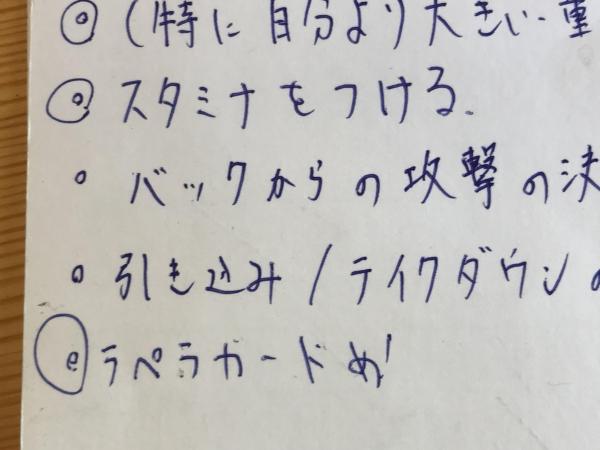 ◎ (特に自分より大きい・重
◎ スタミナをつける.
○ バックからの攻撃の決
○ 引き込み/テイクダウンの
◎ ラペラガード